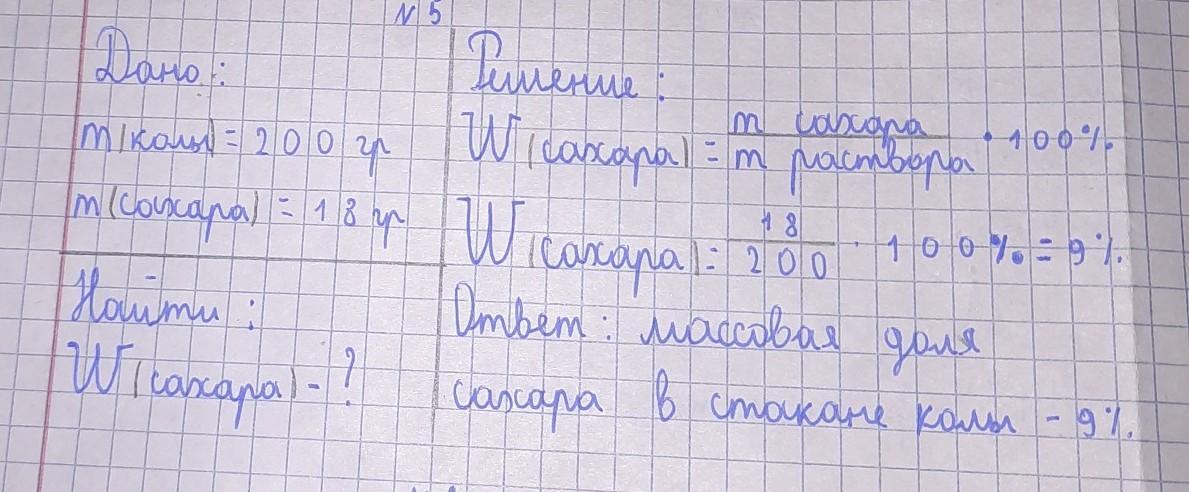 № 5
Дано:
m(колы) = 200 гр
m(сахара) = 18 гр
Найти:
W(сахара) - ?
Решение:
W(сахара) = m сахара / m раствора · 100%
W(сахара) = 18 / 200 · 100% = 9%.
Ответ: массовая доля
сахара в стакане колы - 9%.